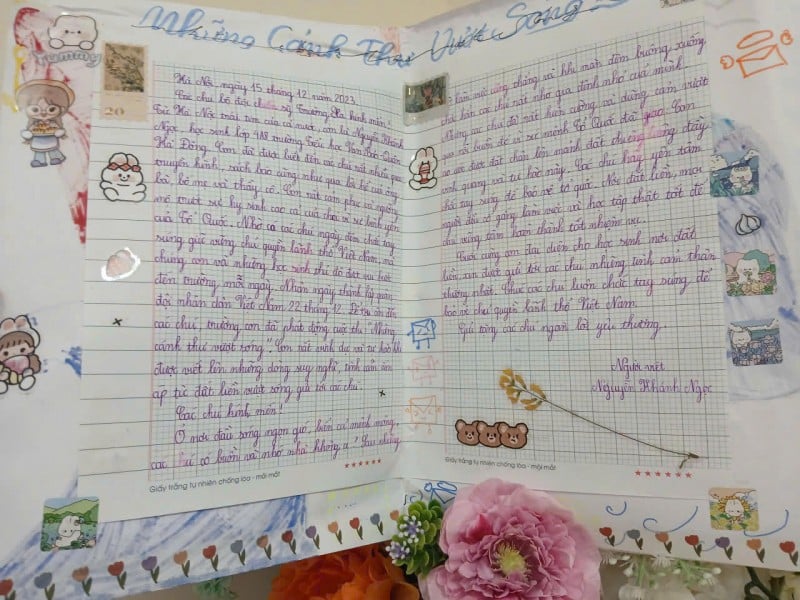 Những Cánh Thư Vượt Sóng
Yummy
20
Hà Nội, ngày 15 tháng 12 năm 2023
Các chú bộ đội chiến sỹ Trường Sa kính mến,
Từ Hà Nội trái tim của cả nước, con là Nguyễn Khánh
Ngọc, học sinh lớp 4A8 trường Tiểu học Văn Yên - Quận
Hà Đông. Con đã được biết đến các chú rất nhiều qua
truyền hình, sách báo cũng như qua lời kể của ông
bà, bố mẹ và thầy cô. Con rất cảm phục và ngưỡng
mộ trước sự hy sinh cao cả của chú vì sự bình yên
của Tổ Quốc. Nhờ có các chú ngày đêm chắc tay
súng giữ vững chủ quyền lãnh thổ Việt Nam, mà
chúng con và những học sinh thủ đô được vui bước
đến trường mỗi ngày. Nhân ngày thành lập quân
đội nhân dân Việt Nam 22 tháng 12. Để tri ân đến
các chú, trường con đã phát động cuộc thi "Những
cánh thư vượt sóng". Con rất vinh dự và tự hào khi
được viết lên những dòng suy nghĩ, tình cảm ấm
áp từ đất liền vượt sóng gửi tới các chú.
Các chú kính mến!
Ở nơi đầu sóng ngọn gió, bốn cư mênh mông,
các chú có buồn và nhớ nhà không ạ? Sau những
Giấy trắng tự nhiên chống lóa - mỏi mắt
căng thẳng và khi màn đêm buông xuống
chắc hẳn các chú rất nhớ gia đình nhỏ của mình.
Những các chú đã rất kiên cường và dũng cảm vượt
qua nỗi buồn để vì sứ mệnh Tổ Quốc đã giao. Con
ao ước được đặt chân lên mảnh đất thiêng liêng đầy
vinh quang và tự hào này. Các chú hãy yên tâm
chắc tay súng để bảo vệ tổ quốc. Nơi đất liền, mọi
người đều cố gắng làm việc và học tập thật tốt để
chú vững tâm hoàn thành tốt nhiệm vụ.
Cuối cùng con đại diện cho học sinh nơi đất
liền xin được gửi tới các chú những tình cảm thân
thương nhất. Chúc các chú luôn chắc tay súng để
bảo vệ chủ quyền lãnh thổ Việt Nam.
Gửi tặng các chú ngàn lời yêu thương.
Người viết
Nguyễn Khánh Ngọc
Giấy trắng tự nhiên chống lóa - mỏi mắt